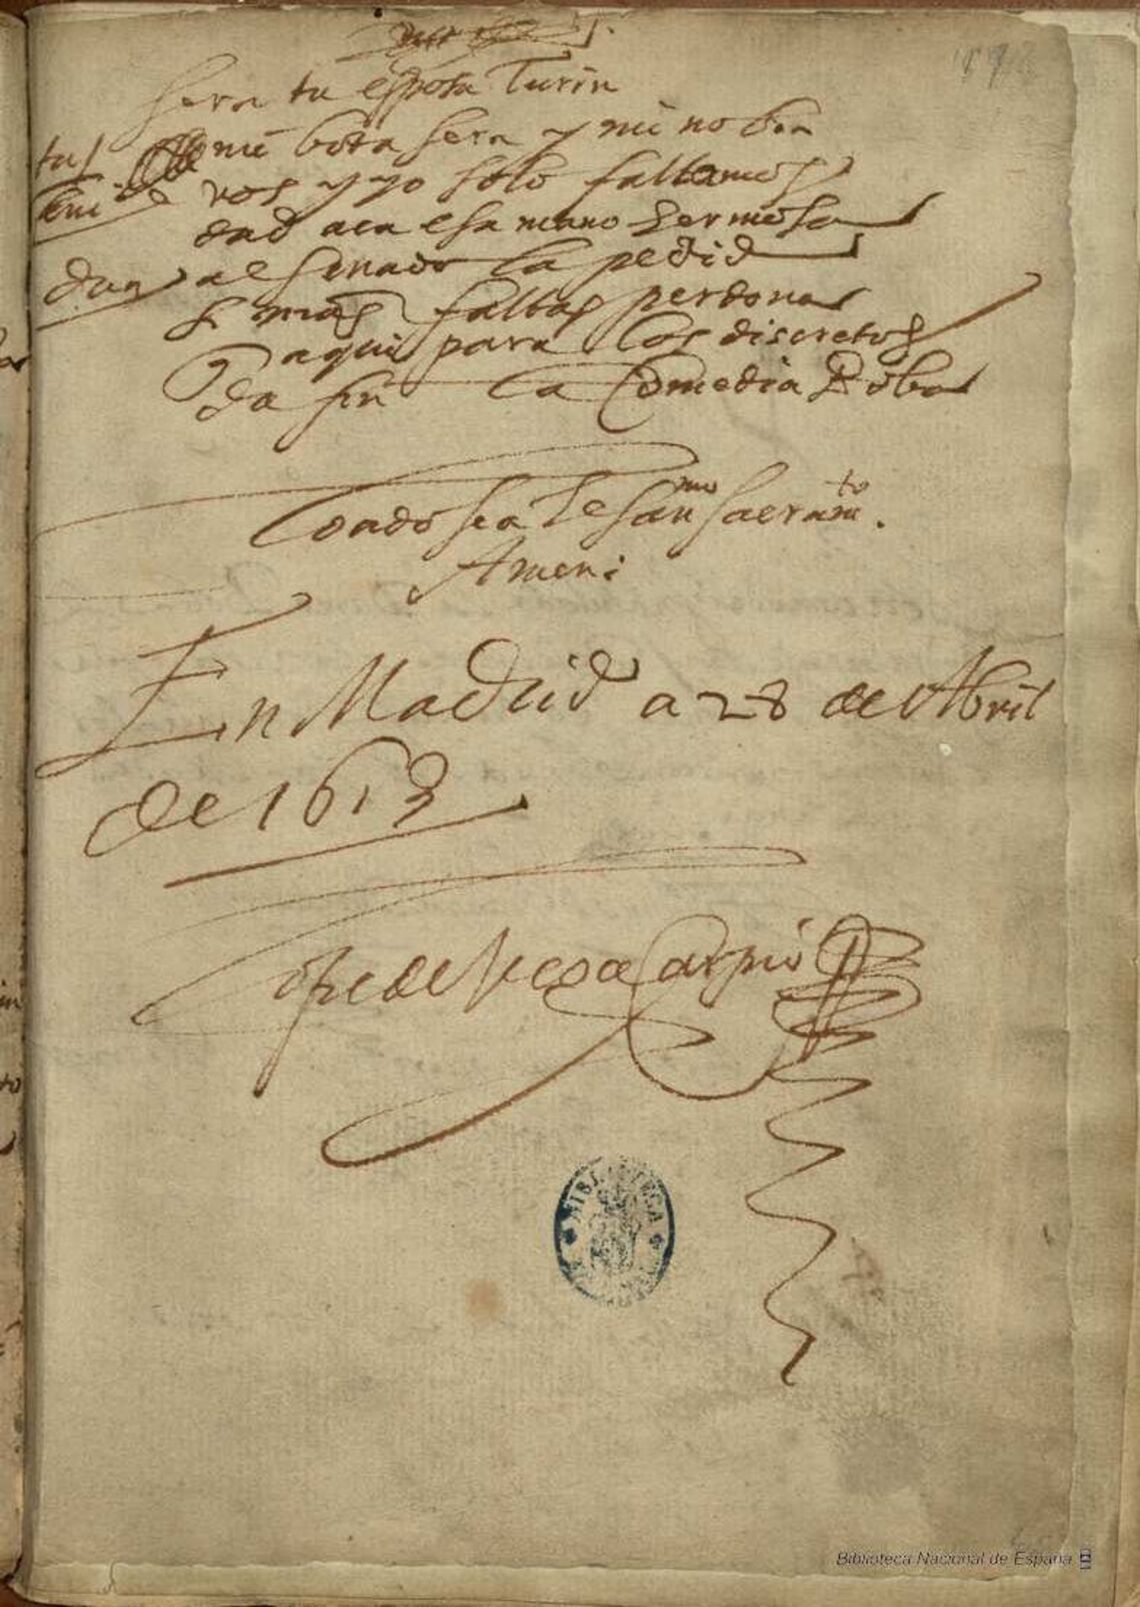 sera tu esposa Turin
tu mi bota sera y mi nobia
vos y yo solo faltamos
dad aca esa mano hermosa
duq al senado la pedid
si nras faltas perdona
q aqui para los discretos
da fin la Comedia Boba
Loado sea el Sanmo Sacramto.
Amen
En Madrid a 28 de Abril
de 1613
Lope de Vega Carpio
BIBLIOTECA
Biblioteca Nacional de España